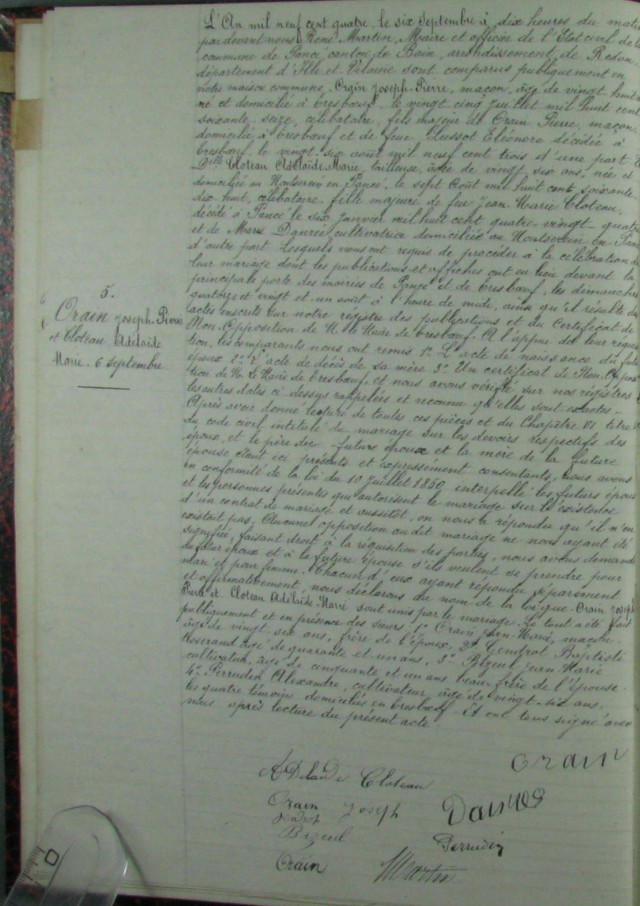 5.
Orain Joseph Pierre
et Cloteau Adélaïde
Marie. 6 septembre
L'An mil neuf cent quatre, le six Septembre à dix heures du matin
par devant nous René Martin, Maire et officier de l'Etat civil de la
commune de Pancé canton de Bain, arrondissement de Redon
département d'Ille et Vilaine sont comparus publiquement en
notre maison commune, Orain Joseph Pierre, maçon, âgé de vingt huit
né et domicilié à Tresboeuf, le vingt cinq juillet mil huit cent
soixante seize, célibataire, fils majeur de Orain Pierre, maçon,
domicilié à Tresboeuf et de feue Eléonore décédée à
Tresboeuf le vingt six août mil neuf cent trois d'une part
Dlle Cloteau Adélaïde Marie, tailleuse, âgée de vingt six ans, née et
domiciliée en Pancé, le sept Août mil huit cent soixante
dix huit, célibataire, fille majeure de feu Jean Marie Cloteau,
décédé à Pancé le six janvier mil huit cent quatre-vingt-quatre
et de Marie cultivatrice domiciliée au en Pancé
d'autre part. Lesquels nous ont requis de procéder à la célébration de
leur mariage dont les publications et affiches ont eu lieu devant la
principale porte des mairies de Pancé et de Tresboeuf, les dimanches
quatorze et vingt et un août à l'heure de midi, ainsi qu'il résulte des
actes inscrits sur notre registre des publications et du Certificat de
Non Opposition de M. le Maire de Tresboeuf. A l'appui de leur réquisi-
tion, les comparants nous ont remis 1° L'acte de naissance du futur
époux 2° L'acte de décès de sa mère 3° Un certificat de Non Opposi-
tion de M. le Maire de Tresboeuf, et nous avons vérifié sur nos registres
les autres dates ci dessus rappelées et reconnu qu'elles sont exactes -
Après avoir donné lecture de toutes ces pièces et du Chapitre VI titre V
du code civil intitulé du mariage sur les devoirs respectifs des
époux, et le père du futur époux et la mère de la future
épouse étant ici présents et expressément consentants, nous avons
en conformité de la loi du 10 juillet 1850 interpellé les futurs époux
et les personnes présentes qui autorisent le mariage sur l'existence
d'un contrat de mariage et aussitôt, on nous a répondu qu'il n'en
existait pas, Aucune opposition au dit mariage ne nous ayant été
signifiée, faisant droit à la réquisition des parties, nous avons demandé
au futur époux et à la future épouse s'ils veulent se prendre pour
mari et pour femme. Chacun d'eux ayant répondu séparément
et affirmativement, nous déclarons au nom de la loi que Orain Joseph
Pierre et Cloteau Adélaïde Marie sont unis par le mariage. Le tout a été fait
publiquement et en présence des sieurs 1° Orain Jean-Marie, maçon
âgé de vingt six ans, frère de l'époux, 2° Gendrot Baptiste
tisserand âgé de quarante et un ans, 3° Bizeul Jean Marie
cultivateur, âgé de cinquante et un ans beau-frère de l'épouse
4° Perrudin Alexandre, cultivateur âgé de vingt-six ans,
les quatre témoins domiciliés en Tresboeuf - Et ont tous signé avec
nous après lecture du présent acte
Orain
Adelaide Cloteau
Orain Joseph
Bizeul
Perrudin
Orain
Martin